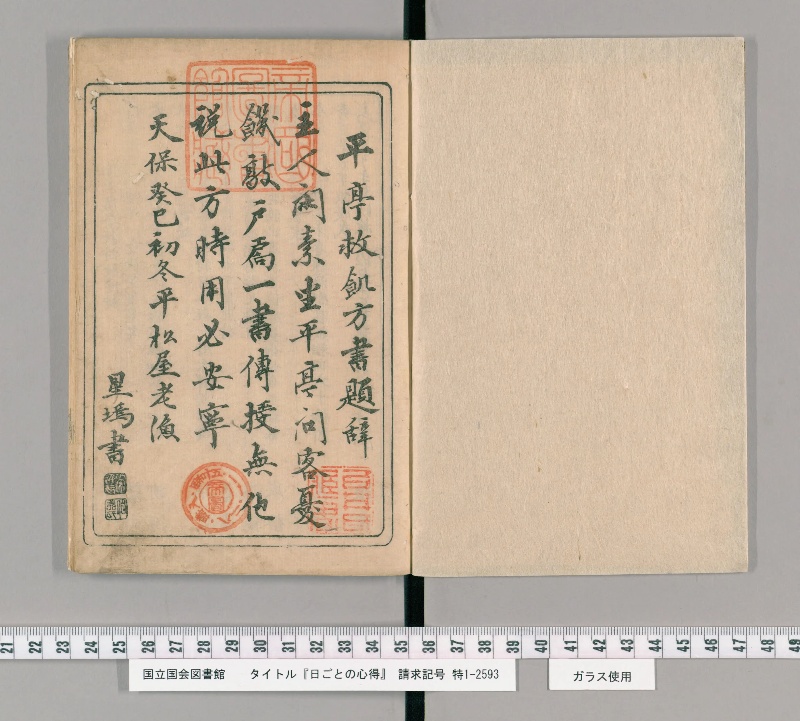 平亭救飢方書題辞
主人閑素坐平亭問客憂
饑敲戸扄一書傳授無他
説此方時用必安寧
天保癸巳初冬平松屋老漁
星塢書
21 22 23 24 25 26 27 28 29 30 31 32 33 34 35 36 37 38 39 40 41 42 43 44 45 46 47 48 49
国立国会図書館 タイトル『日ごとの心得』 請求記号 特1-2593
ガラス使用